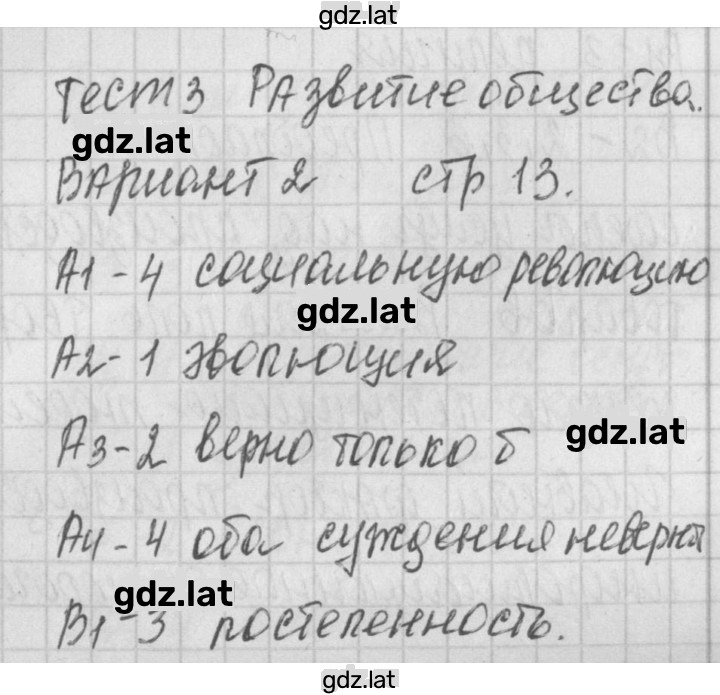 gdz.lat
тест 3 Развитие общества.
gdz.lat
Вариант 2 стр 13.
А1 - 4 социальную революцию
gdz.lat
А2 - 1 эволюция
А3 - 2 верно только б
gdz.lat
А4 - 4 оба суждения неверны
gdz.lat
В1 - 3 постепенность.
gdz.lat